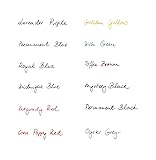 Lavender Purple
Permanent Blue
Royal Blue
Midnight Blue
Burgundy Red
Corn Poppy Red
Golden Yellow
Irish Green
Toffee Brown
Mystery Black
Permanent Black
Oyster Grey